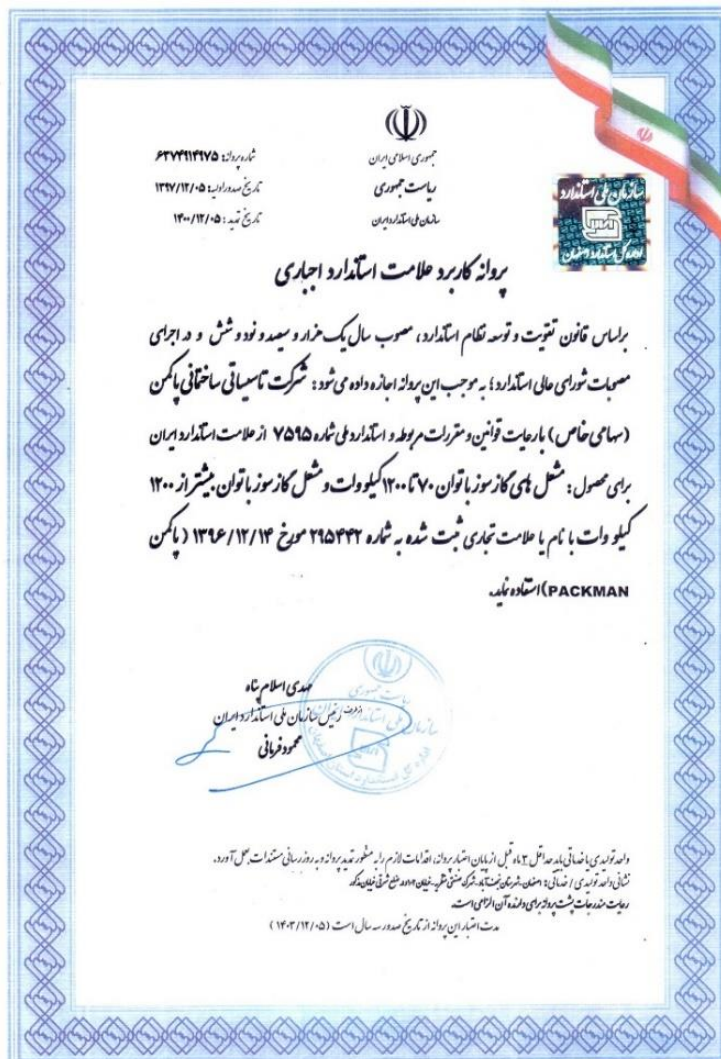 جمهوری اسلامی ایران
ریاست جمهوری
سازمان ملی استاندارد ایران
شماره پروانه: ۶۳۷۴۹۱۴۹۷۵
تاریخ صدور اولیه: ۱۳۹۷/۱۲/۰۵
تاریخ تمدید: ۱۴۰۰/۱۲/۰۵
سازمان ملی استاندارد
اداره کل استاندارد اصفهان
پروانه کاربرد علامت استاندارد اجباری
براساس قانون تقویت و توسعه نظام استاندارد، مصوب سال یک هزار و سیصد و نود و شش و در اجرای
مصوبات شورای عالی استاندارد؛ به موجب این پروانه اجازه داده می شود: شرکت تاسیساتی ساختمانی پاکمن
(سهامی خاص) با رعایت قوانین و مقررات مربوطه و استاندارد ملی شماره ۷۵۹۵ از علامت استاندارد ایران
برای محصول: مشعل های گازسوز با توان ۷۰ تا ۱۲۰۰ کیلو وات و مشعل گازسوز با توان بیشتر از ۱۲۰۰
کیلو وات با نام یا علامت تجاری ثبت شده به شماره ۲۹۵۴۴۲ مورخ ۱۳۹۶/۱۲/۱۴ (پاکمن
PACKMAN) استفاده نماید.
مهدی اسلام پناه
از طرف رئیس سازمان ملی استاندارد ایران
محمود فرمانی
ریاست جمهوری
سازمان ملی استاندارد ایران
واحد تولیدی یا خدماتی باید حداقل ۳ ماه قبل از پایان اعتبار پروانه، اقدامات لازم را به منظور تمدید پروانه و به روز رسانی مستندات بعمل آورد.
نشانی واحد تولیدی / خدماتی: اصفهان، شهرستان نجف آباد، شهرک صنعتی منتظریه، خیابان
رعایت مندرجات پشت پروانه برای دارنده آن الزامی است.
مدت اعتبار این پروانه از تاریخ صدور سه سال است (۱۴۰۳/۱۲/۰۵)